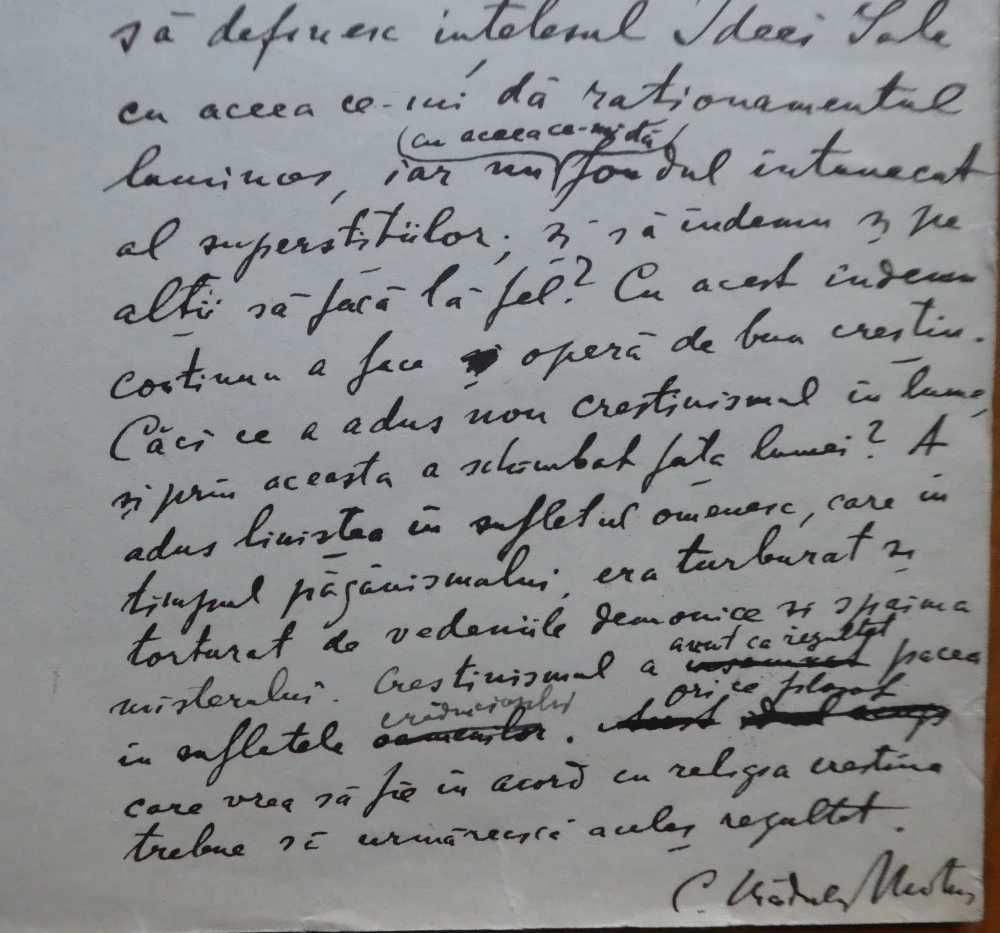 să definesc înțelesul Ideei Sale
cu aceea ce-mi dă raționamentul
(cu aceea ce-mi dă)
luminos, iar nu fondul întunecat
al superstițiilor; și să îndemn și pe
alții să facă la fel? Cu acest îndemn
conținuu a face operă de bun creștin.
Căci ce a adus nou creștinismul în lume,
și prin aceasta a schimbat fața lumei? A
adus liniștea în sufletul omenesc, care în
timpul păgânismului, era turburat și
torturat de vedeniile demonice și spaima
avut ca rezultat
misterului. Creștinismul a însemnat pacea
crădincioșilor orice filozof
în sufletele oamenilor.
care vrea să fie în acord cu religia creștină
trebue să urmărească acelaș rezultat.
C. Rădulescu Motru